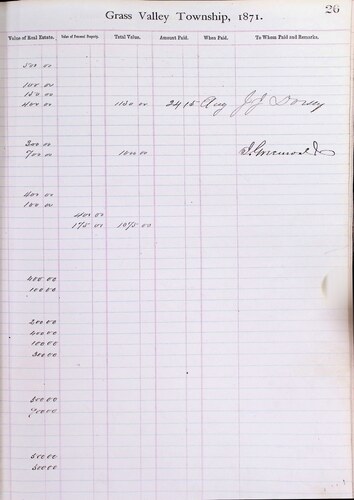 Grass Valley Township, 1871.
26
Value of Real Estate. Value of Personal Property. Total Value. Amount Paid. When Paid. To Whom Paid and Remarks.
500 00
100 00
150 00
400 00 1150 00 24 15 Aug J J Dorsey
300 00
700 00 1000 00
400 00
100 00
400 00
175 00 1075 00
400 00
100 00
200 00
400 00
100 00
300 00
800 00
700 00
500 00
500 00